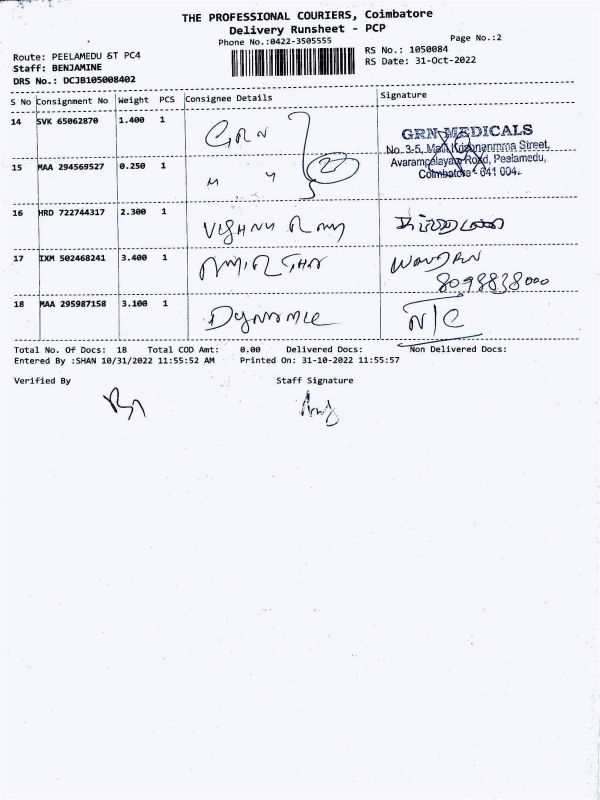 THE PROFESSIONAL COURIERS, Coimbatore
Delivery Runsheet - PCP
Phone No.:0422-3505555
Page No.:2
Route: PEELAMEDU 6T PC4
RS No.: 1050084
Staff: BENJAMINE
RS Date: 31-Oct-2022
DRS No.: DCJB105008402
S No Consignment No Weight PCS Consignee Details Signature
14 SVK 65062870 1.400 1 GRN
GRN MEDICALS
No. 3-5, Street,
15 MAA 294569527 0.250 1 " " 27
Avarampalayam Road, Peelamedu,
Coimbatore - 641 004.
16 HRD 722744317 2.300 1 VISHNU
17 IXM 502468241 3.400 1
8098838000
18 MAA 295987158 3.100 1 N/C
Total No. Of Docs: 18 Total COD Amt: 0.00 Delivered Docs: Non Delivered Docs:
Entered By :SHAN 10/31/2022 11:55:52 AM Printed On: 31-10-2022 11:55:57
Verified By Staff Signature